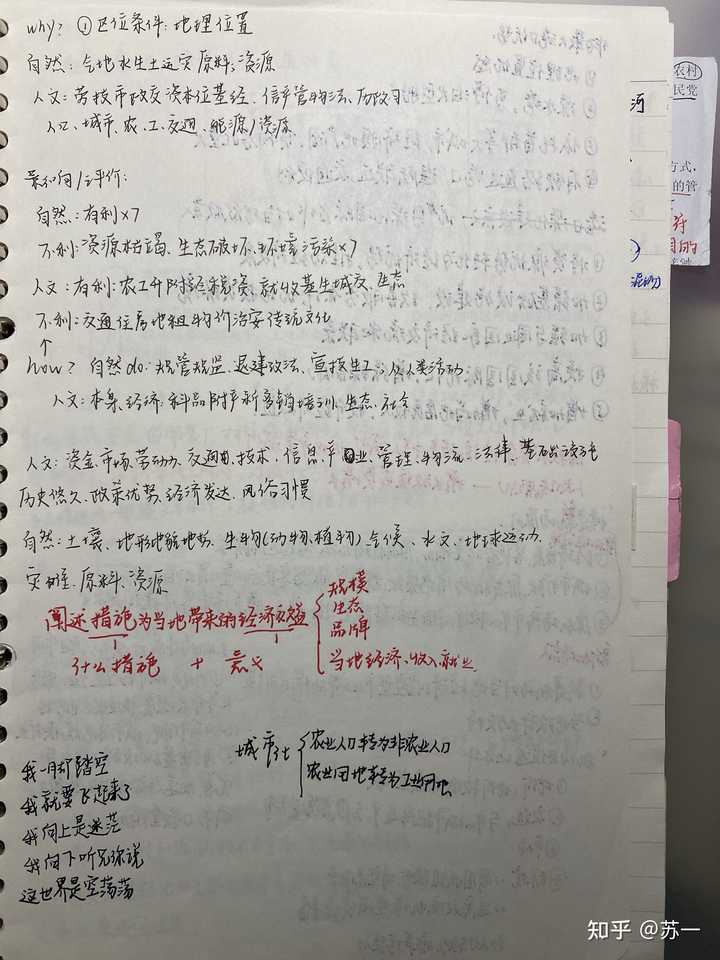 why? ①区位条件: 地理位置
自然: 气地水生土运灾原料, 资源
人文: 劳技市政交资本位基经、信产管物法、历政习
人口、城市、农、工、交通、能源/资源
影响/评价:
自然: 有利×7
不利: 资源枯竭、生态破坏、环境污染×7
人文: 有利: 农工升附经税资、就收基生城交、生态
不利: 交通住房地租物价治安传统文化
how? 自然do: 规管规监、退建改法、宣技生工、人类活动
人文: 本集、经济、科品附产新多销培训、生态、社会
人文: 资金、市场、劳动力、交通、技术、信息、产业、管理、物流、法律、基础设施
历史悠久、政策优势、经济发达、风俗习惯
自然: 土壤、地形地貌地势、生物(动物、植物) 气候、水文、地球运动、
灾难、原料、资源
阐述措施为当地带来的经济效益
规模
生态
品牌
当地经济、收入、就业
什么措施 + 意义
城市化
农业人口转为非农业人口
农业用地转为工业用地
我一脚踏空
我就要飞起来了
我向上是迷茫
我向下听见你说
这世界是空荡荡
农村
民党
河
方式.
的管
符
目的
知乎 @苏一